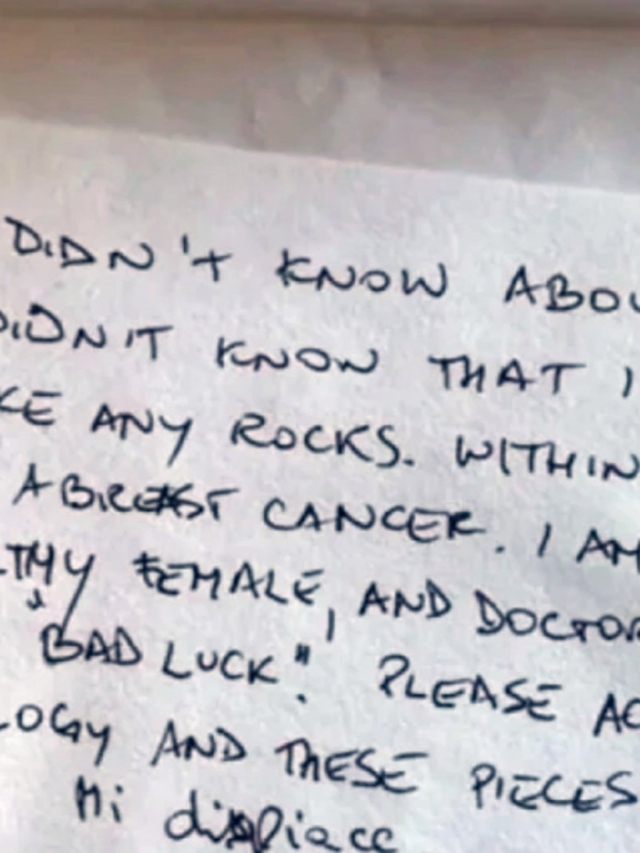 DIDN'T KNOW ABOU
DIDN'T KNOW THAT I
KE ANY ROCKS. WITHIN
A BREAST CANCER. I AM
LTHY FEMALE, AND DOCTOR
"BAD LUCK". PLEASE AC
LOGY AND THESE PIECES
Mi dispiace